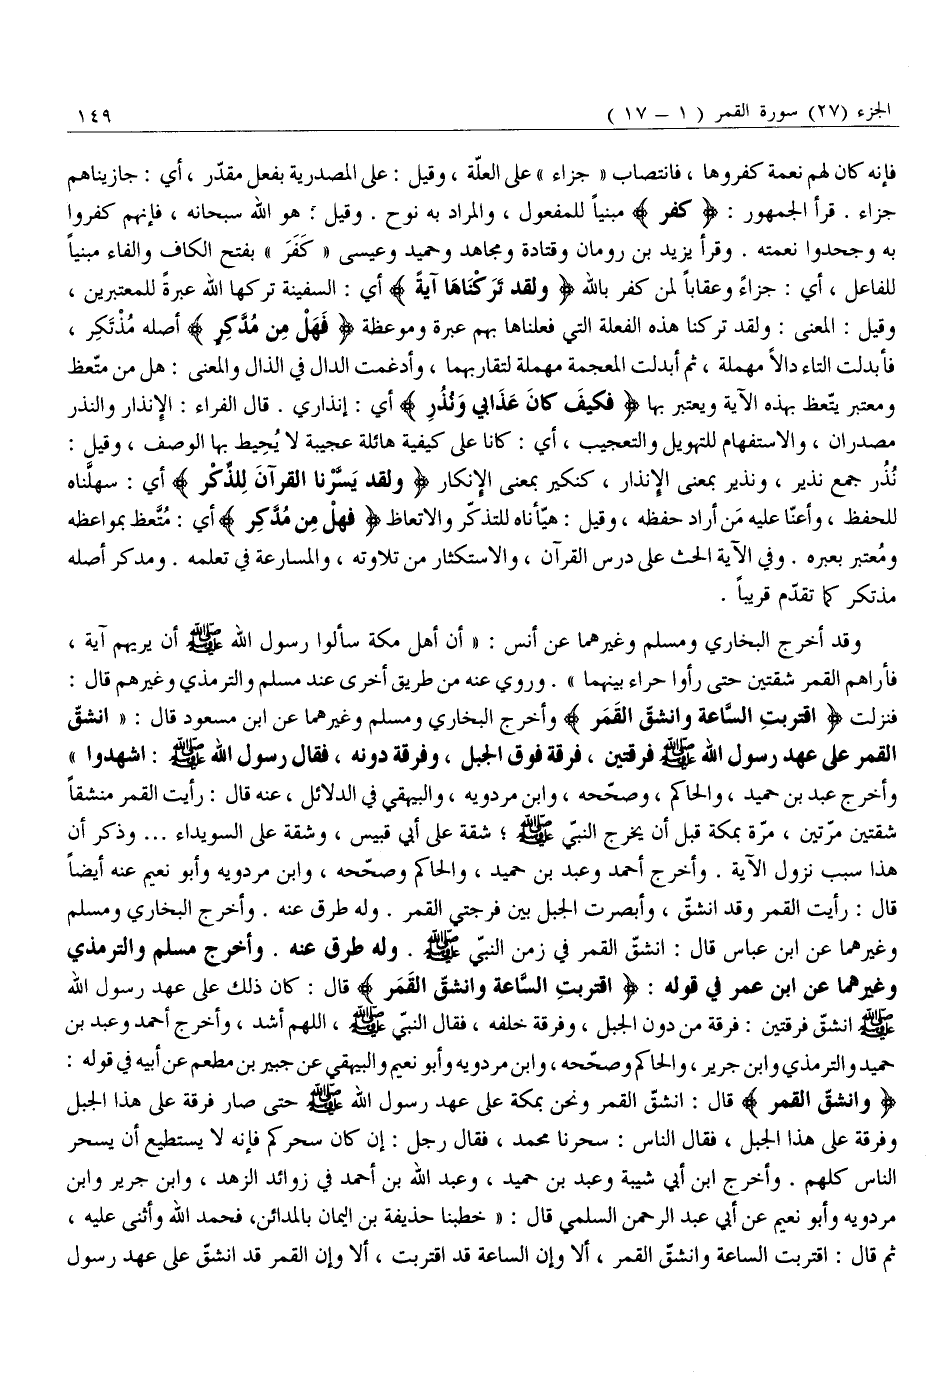 الجزء (٢٧) سورة القمر ( ١ - ١٧ ) ١٤٩
فإنه كان لهم نعمة كفروها ، فانتصاب « جزاء » على العلّة ، وقيل : على المصدرية بفعل مقدّر ، أي : جازيناهم
جزاء . قرأ الجمهور : ﴿ كفر ﴾ مبنياً للمفعول ، والمراد به نوح . وقيل : هو الله سبحانه ، فإنهم كفروا
به وجحدوا نعمته . وقرأ يزيد بن رومان وقتادة ومجاهد وحميد وعيسى « كَفَرَ » بفتح الكاف والفاء مبنياً
للفاعل ، أي : جزاءً وعقاباً لمن كفر بالله ﴿ ولقد تَرَكْنَاهَا آيةً ﴾ أي : السفينة تركها الله عبرةً للمعتبرين ،
وقيل : المعنى : ولقد تركنا هذه الفعلة التي فعلناها بهم عبرة وموعظة ﴿ فَهَلْ مِن مُدَّكِرٍ ﴾ أصله مُذْتَكِر ،
فأبدلت التاء دالاً مهملة ، ثم أبدلت المعجمة مهملة لتقاربهما ، وأدغمت الدال في الذال والمعنى : هل من متّعظ
ومعتبر يتّعظ بهذه الآية ويعتبر بها ﴿ فكيف كانَ عَذابي وَنُذُرِ ﴾ أي : إنذاري . قال الفراء : الإنذار والنذر
مصدران ، والاستفهام للتهويل والتعجيب ، أي : كانا على كيفية هائلة عجيبة لا يُحِيط بها الوصف ، وقيل :
نُذُر جمع نذير ، ونذير بمعنى الإنذار ، كنكير بمعنى الإنكار ﴿ ولقد يَسَّرْنا القرآنَ لِلذِّكْر ﴾ أي : سهلَّناه
للحفظ ، وأعنّا عليه مَن أراد حفظه ، وقيل : هيّأناه للتذكّر والاتعاظ ﴿ فهلْ مِن مُدَّكِرٍ ﴾ أي : متَّعظ بمواعظه
ومُعتبر بعبره . وفي الآية الحث على درس القرآن ، والاستكثار من تلاوته ، والمسارعة في تعلمه . ومدكر أصله
مذتكر كما تقدّم قريباً .
وقد أخرج البخاري ومسلم وغيرهما عن أنس : « أن أهل مكة سألوا رسول الله ﷺ أن يريهم آية ،
فأراهم القمر شقتين حتى رأوا حراء بينهما » . وروي عنه من طريق أخرى عند مسلم والترمذي وغيرهم قال :
فنزلت ﴿ اقتربتِ السَّاعة وانشقّ القَمَر ﴾ وأخرج البخاري ومسلم وغيرهما عن ابن مسعود قال : « انشقّ
القمر على عهد رسول الله ﷺ فرقتين ، فرقة فوق الجبل ، وفرقة دونه ، فقال رسول الله ﷺ : اشهدوا »
وأخرج عبد بن حميد ، والحاكم ، وصحّحه ، وابن مردويه ، والبيهقي في الدلائل ، عنه قال : رأيت القمر منشقاً
شقتين مرّتين ، مرّة بمكة قبل أن يخرج النبيّ ﷺ ؛ شقة على أبي قبيس ، وشقة على السويداء ... وذكر أن
هذا سبب نزول الآية . وأخرج أحمد وعبد بن حميد ، والحاكم وصحّحه ، وابن مردويه وأبو نعيم عنه أيضاً
قال : رأيت القمر وقد انشقّ ، وأبصرت الجبل بين فرجتي القمر . وله طرق عنه . وأخرج البخاري ومسلم
وغيرهما عن ابن عباس قال : انشقّ القمر في زمن النبيّ ﷺ . وله طرق عنه . وأخرج مسلم والترمذي
وغيرهما عن ابن عمر في قوله : ﴿ اقتربتِ السَّاعة وانشقّ القَمَر ﴾ قال : كان ذلك على عهد رسول الله
ﷺ انشقّ فرقتين : فرقة من دون الجبل ، وفرقة خلفه ، فقال النبيّ ﷺ ، اللهم أشد ، وأخرج أحمد وعبد بن
حميد والترمذي وابن جرير ، والحاكم وصحّحه، وابن مردويه وأبو نعيم والبيهقي عن جبير بن مطعم عن أبيه في قوله :
﴿ وانشقّ القمر ﴾ قال : انشقّ القمر ونحن بمكة على عهد رسول الله ﷺ حتى صار فرقة على هذا الجبل
وفرقة على هذا الجبل ، فقال الناس : سحرنا محمد ، فقال رجل : إن كان سحركم فإنه لا يستطيع أن يسحر
الناس كلهم . وأخرج ابن أبي شيبة وعبد بن حميد ، وعبد الله بن أحمد في زوائد الزهد ، وابن جرير وابن
مردويه وأبو نعيم عن أبي عبد الرحمن السلمي قال : « خطبنا حذيفة بن اليمان بالمدائن، فحمد الله وأثنى عليه ،
ثم قال : اقتربت الساعة وانشقّ القمر ، ألا وإن الساعة قد اقتربت ، ألا وإن القمر قد انشقّ على عهد رسول